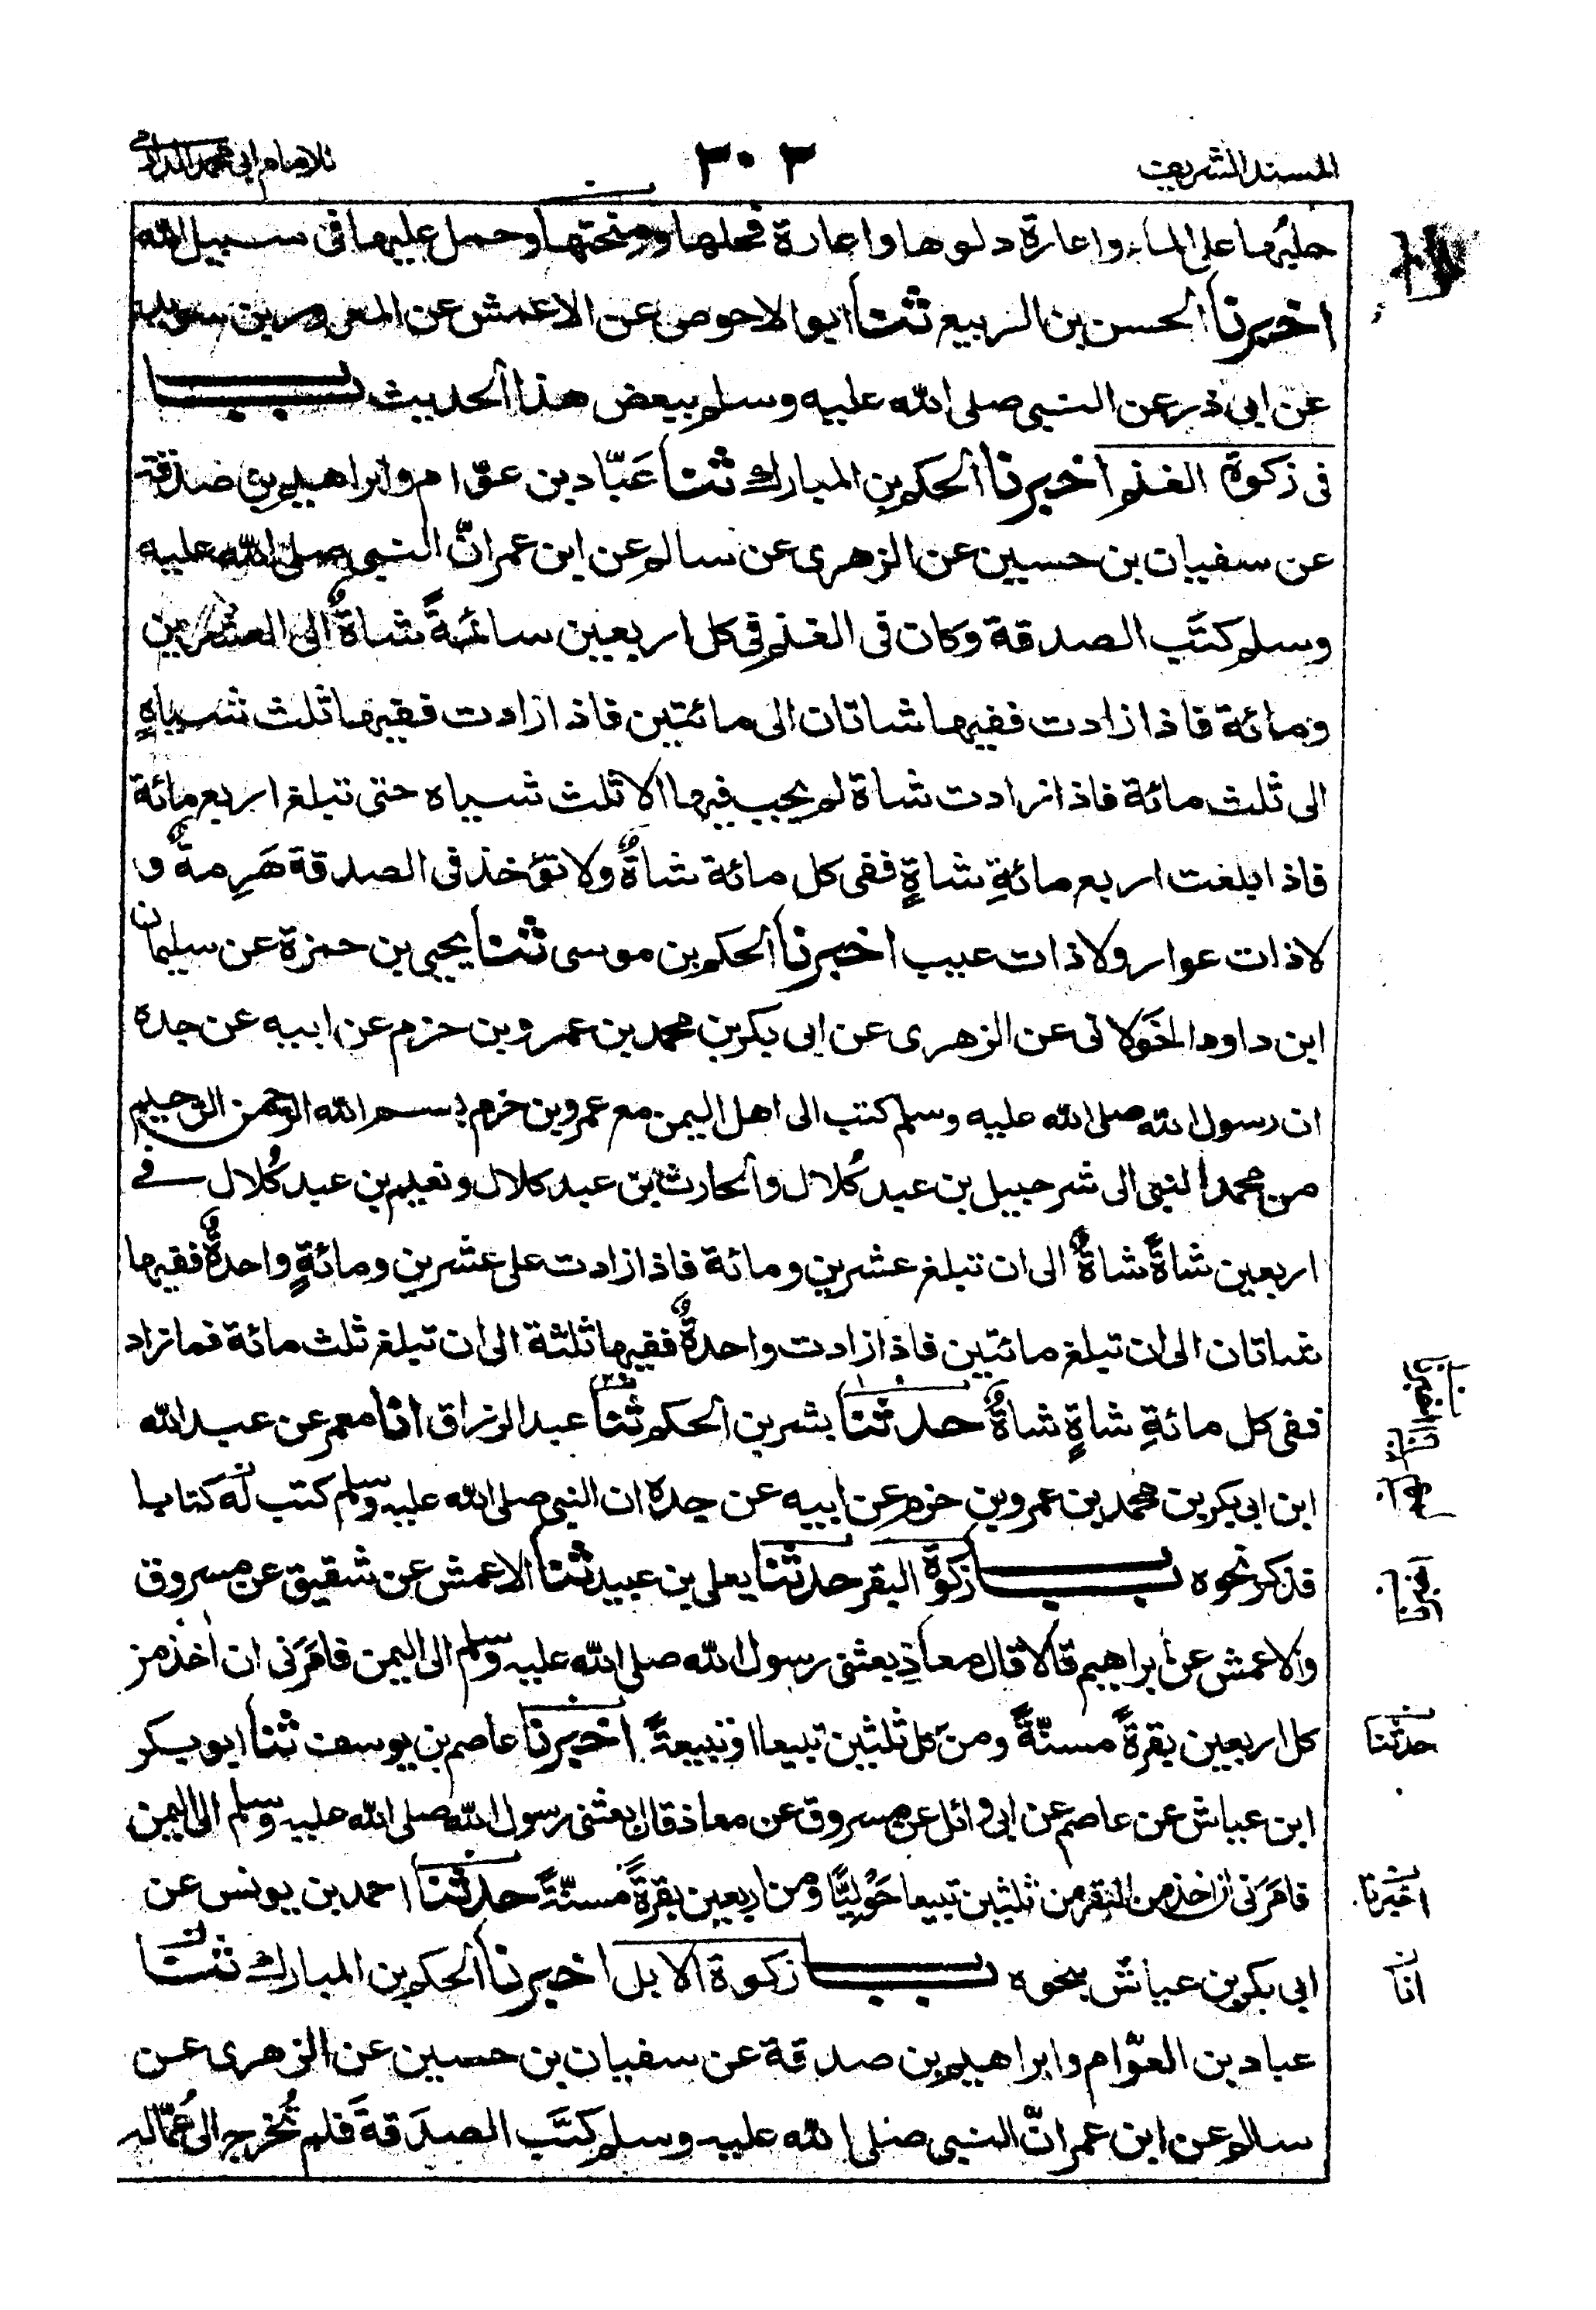 المسند الشريف
٣٠٣
للامام ابى محمد الدارمى
حلبُها على الماء واعارة دلوها واعارة فحلها ومنحتها وحمل عليها فى سبيل الله
اخبرنا الحسن بن الربيع ثنا ابوالاحوص عن الاعمش عن المعرور بن سويد
عن ابى ذر عن النبى صلى الله عليه وسلم ببعض هذا الحديث باب
فى زكوة الغنم اخبرنا الحكم بن المبارك ثنا عَبّاد بن عوّام وابراهيم بن صدقة
عن سفيان بن حسين عن الزهرى عن سالم عن ابن عمر انّ النبى صلى الله عليه
وسلم كتَب الصدقة وكان فى الغنم فى كل اربعين سائمةً شاةٌ الى العشرين
ومائة فاذا زادت ففيها شاتان الى مائتين فاذا زادت ففيها ثلث شياهٍ
الى ثلث مائة فاذا زادت شاة لم يجب فيها الا ثلث شياه حتى تبلغ اربع مائة
فاذا بلغت اربع مائةِ شاةٍ ففى كل مائة شاةٌ ولا تؤخذ فى الصدقة هَرِمةٌ و
لا ذات عوار ولا ذات عيب اخبرنا الحكم بن موسى ثنا يحيى بن حمزة عن سليمان
ابن داود الخَولانى عن الزهرى عن ابى بكر بن محمد بن عمرو بن حزم عن ابيه عن جده
ان رسول الله صلى الله عليه وسلم كتب الى اهل اليمن مع عمرو بن حزم بسم الله الرحمن الرحيم
من محمد النبى الى شرحبيل بن عبد كُلال والحارث بن عبد كلال ونعيم بن عبد كُلال فى
اربعين شاةً شاةٌ الى ان تبلغ عشرين ومائة فاذا زادت على عشرين ومائةٍ واحدةٌ ففيها
شاتان الى ان تبلغ مائتين فاذا زادت واحدةٌ ففيها ثلثة الى ان تبلغ ثلث مائة فما زاد
ففى كل مائةِ شاةٍ شاةٌ حدثنا بشر بن الحكم ثنا عبد الرزاق انا معمر عن عبد الله
ابن ابى بكر بن محمد بن عمرو بن حزم عن ابيه عن جده ان النبى صلى الله عليه وسلم كتب له كتابا
فذكر نحوه باب زكوة البقر حدثنا يعلى بن عبيد ثنا الاعمش عن شقيق عن مسروق
والاعمش عن ابراهيم قالا قال معاذ بعثنى رسول الله صلى الله عليه وسلم الى اليمن فامَرَنى ان اٰخذ من
كل اربعين بقرةً مسنّةً ومن كل ثلثين تبيعا او تبيعةً اخبرنا عاصم بن يوسف ثنا ابوبكر
ابن عياش عن عاصم عن ابى وائل عن مسروق عن معاذ قال بعثنى رسول الله صلى الله عليه وسلم الى اليمن
فامَرَنى ان اٰخذ من البقر من ثلثين تبيعا حَوْليًّا ومن اربعين بقرةً مسنّةً حدثنا احمد بن يونس عن
ابى بكر بن عياش بنحوه باب زكوة الابل اخبرنا الحكم بن المبارك ثنا
عباد بن العوّام وابراهيم بن صدقة عن سفيان بن حسين عن الزهرى عن
سالم عن ابن عمر انّ النبى صلى الله عليه وسلم كتَب الصدَقةَ فلم تُخرج الى عُمّاله
اخبرنا
حدثنا
اخبرنا
انا